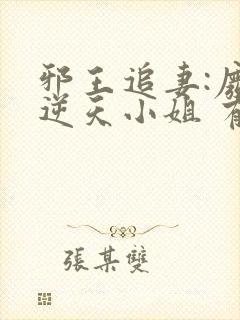 邪王追妻:
逆天小姐
張某雙